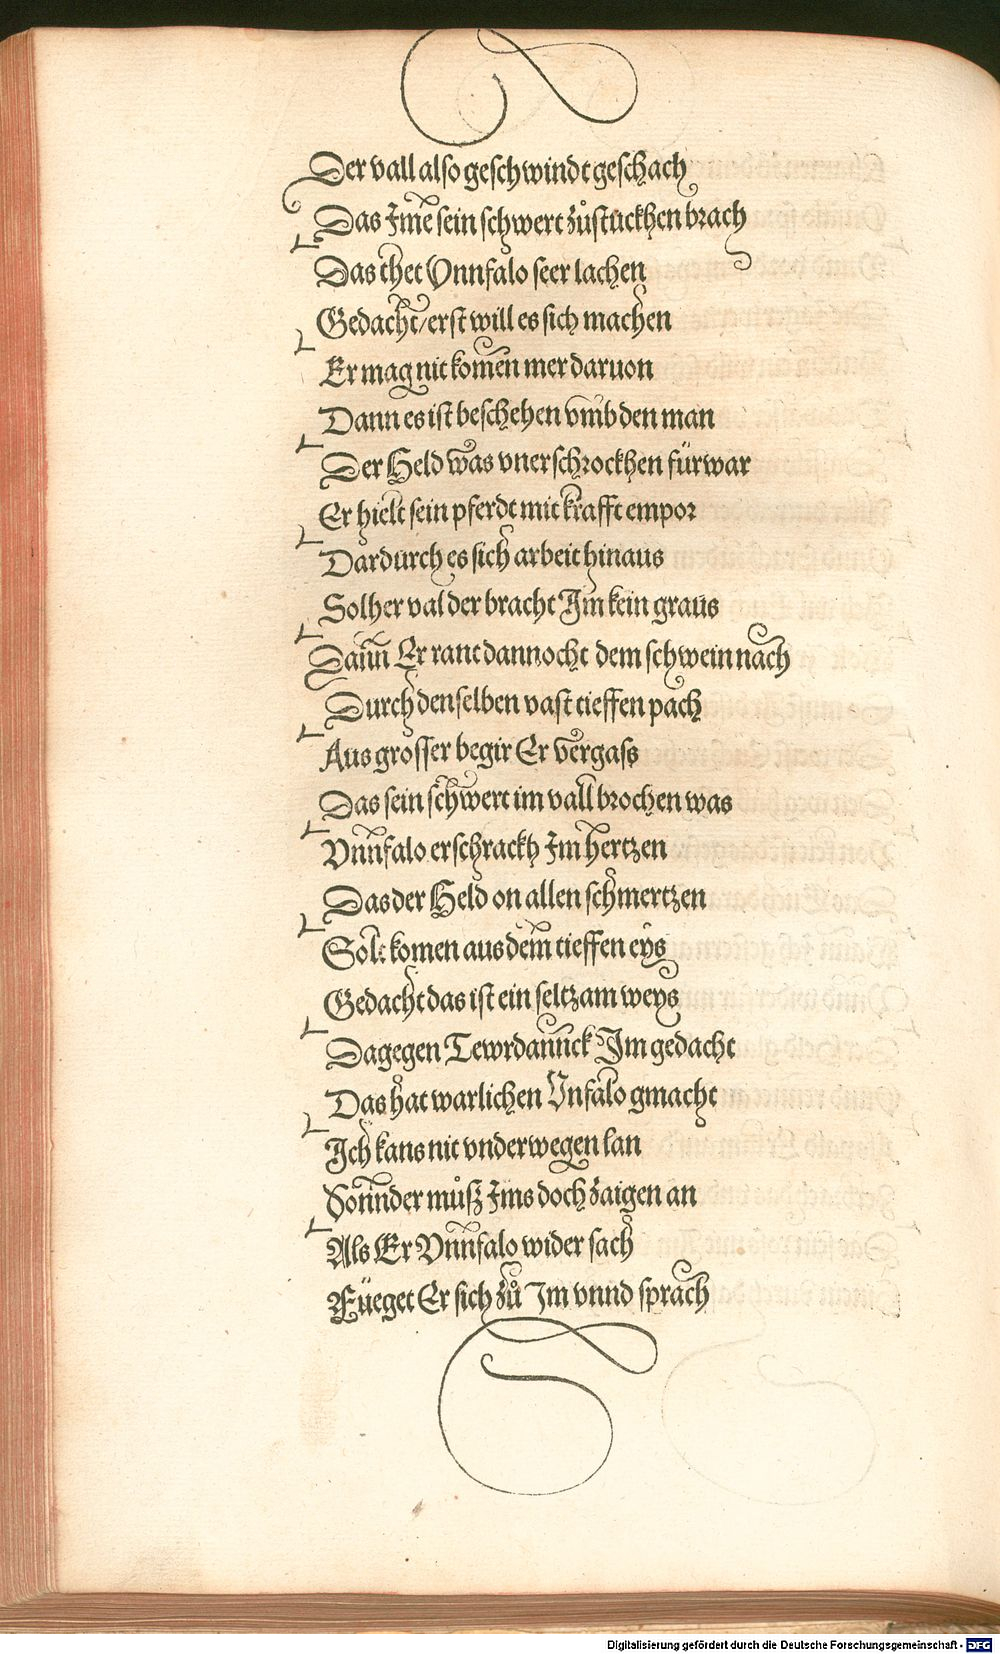 Der vall also geschwindt geschach
Das Ime sein schwert zůstuckhen brach
Das thet Vnnfalo seer lachen
Gedacht/erst will es sich machen
Er mag nit komen mer daruon
Dann es ist beschehen vmb den man
Der Held was vnerschrockhen fürwar
Er hielt sein pferdt mit krafft empor
Dardurch es sich arbeit hinaus
Solher val der bracht Im kein graus
Dann Er rant dannocht dem schwein nach
Durch denselben vast tieffen pach
Aus grosser begir Er vergass
Das sein schwert im vall brochen was
Vnnfalo erschrackh Im hertzen
Das der Held on allen schmertzen
Solt komen aus dem tieffen eys
Gedacht das ist ein seltzam weys
Dagegen Tewrdannck Im gedacht
Das hat warlichen Vnfalo gmacht
Ich kans nit vnderwegen lan
Sonnder můsz Ims doch zaigen an
Als Er Vnnfalo wider sach
Füeget Er sich zů Im vnnd sprach
Digitalisierung gefördert durch die Deutsche Forschungsgemeinschaft - DFG